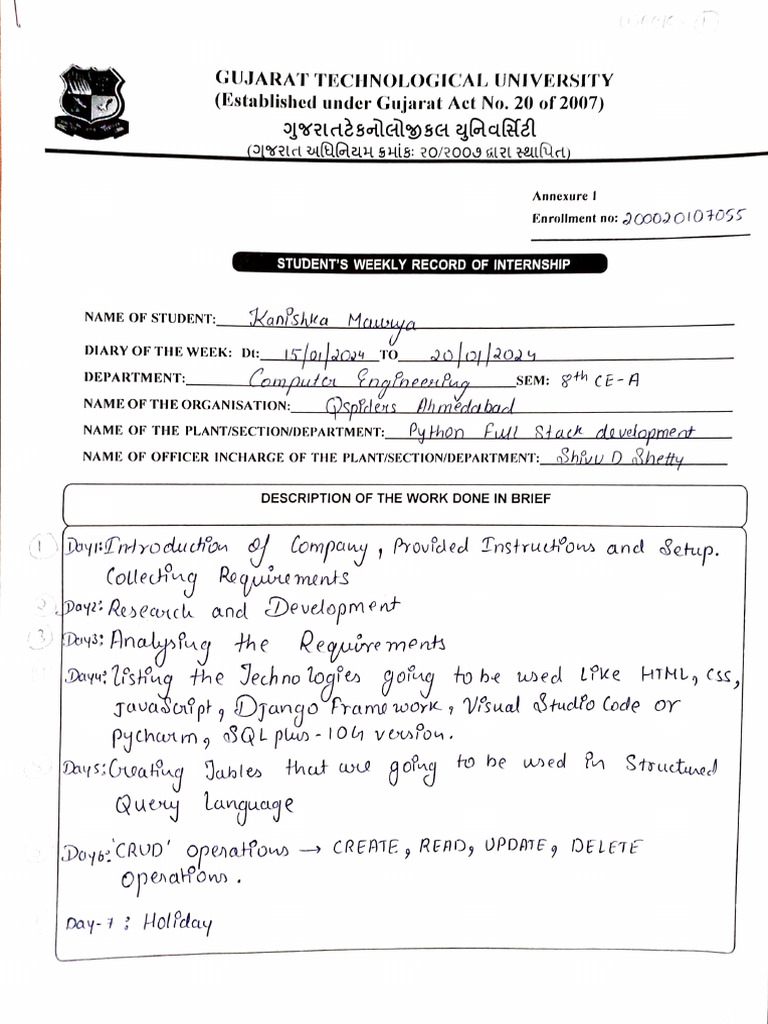 WEEK - 1
GUJARAT TECHNOLOGICAL UNIVERSITY
(Established under Gujarat Act No. 20 of 2007)
ગુજરાતટેકનોલોજીકલ યુનિવર્સિટી
(ગુજરાત અધિનિયમ ક્રમાંકઃ ૨૦/૨૦૦૭ દ્વારા સ્થાપિત)
Annexure 1
Enrollment no: 200020107055
STUDENT'S WEEKLY RECORD OF INTERNSHIP
NAME OF STUDENT: Kanishka Maurya
DIARY OF THE WEEK: Dt: 15/01/2024 TO 20/01/2024
DEPARTMENT: Computer Engineering SEM: 8th CE-A
NAME OF THE ORGANISATION: Qspiders Ahmedabad
NAME OF THE PLANT/SECTION/DEPARTMENT: Python Full Stack development
NAME OF OFFICER INCHARGE OF THE PLANT/SECTION/DEPARTMENT: Shivu D Shetty
DESCRIPTION OF THE WORK DONE IN BRIEF
1 Day1: Introduction of Company, Provided Instructions and Setup.
Collecting Requirements
2 Day2: Research and Development
3 Day3: Analysing the Requirements
Day4: Listing the Technologies going to be used like HTML, CSS,
JavaScript, Django Framework, Visual Studio Code or
Pycharm, SQL plus-10G version.
Day5: Creating Tables that are going to be used in Structured
Query Language
Day6: 'CRUD' operations → CREATE, READ, UPDATE, DELETE
operations.
Day-7 : Holiday